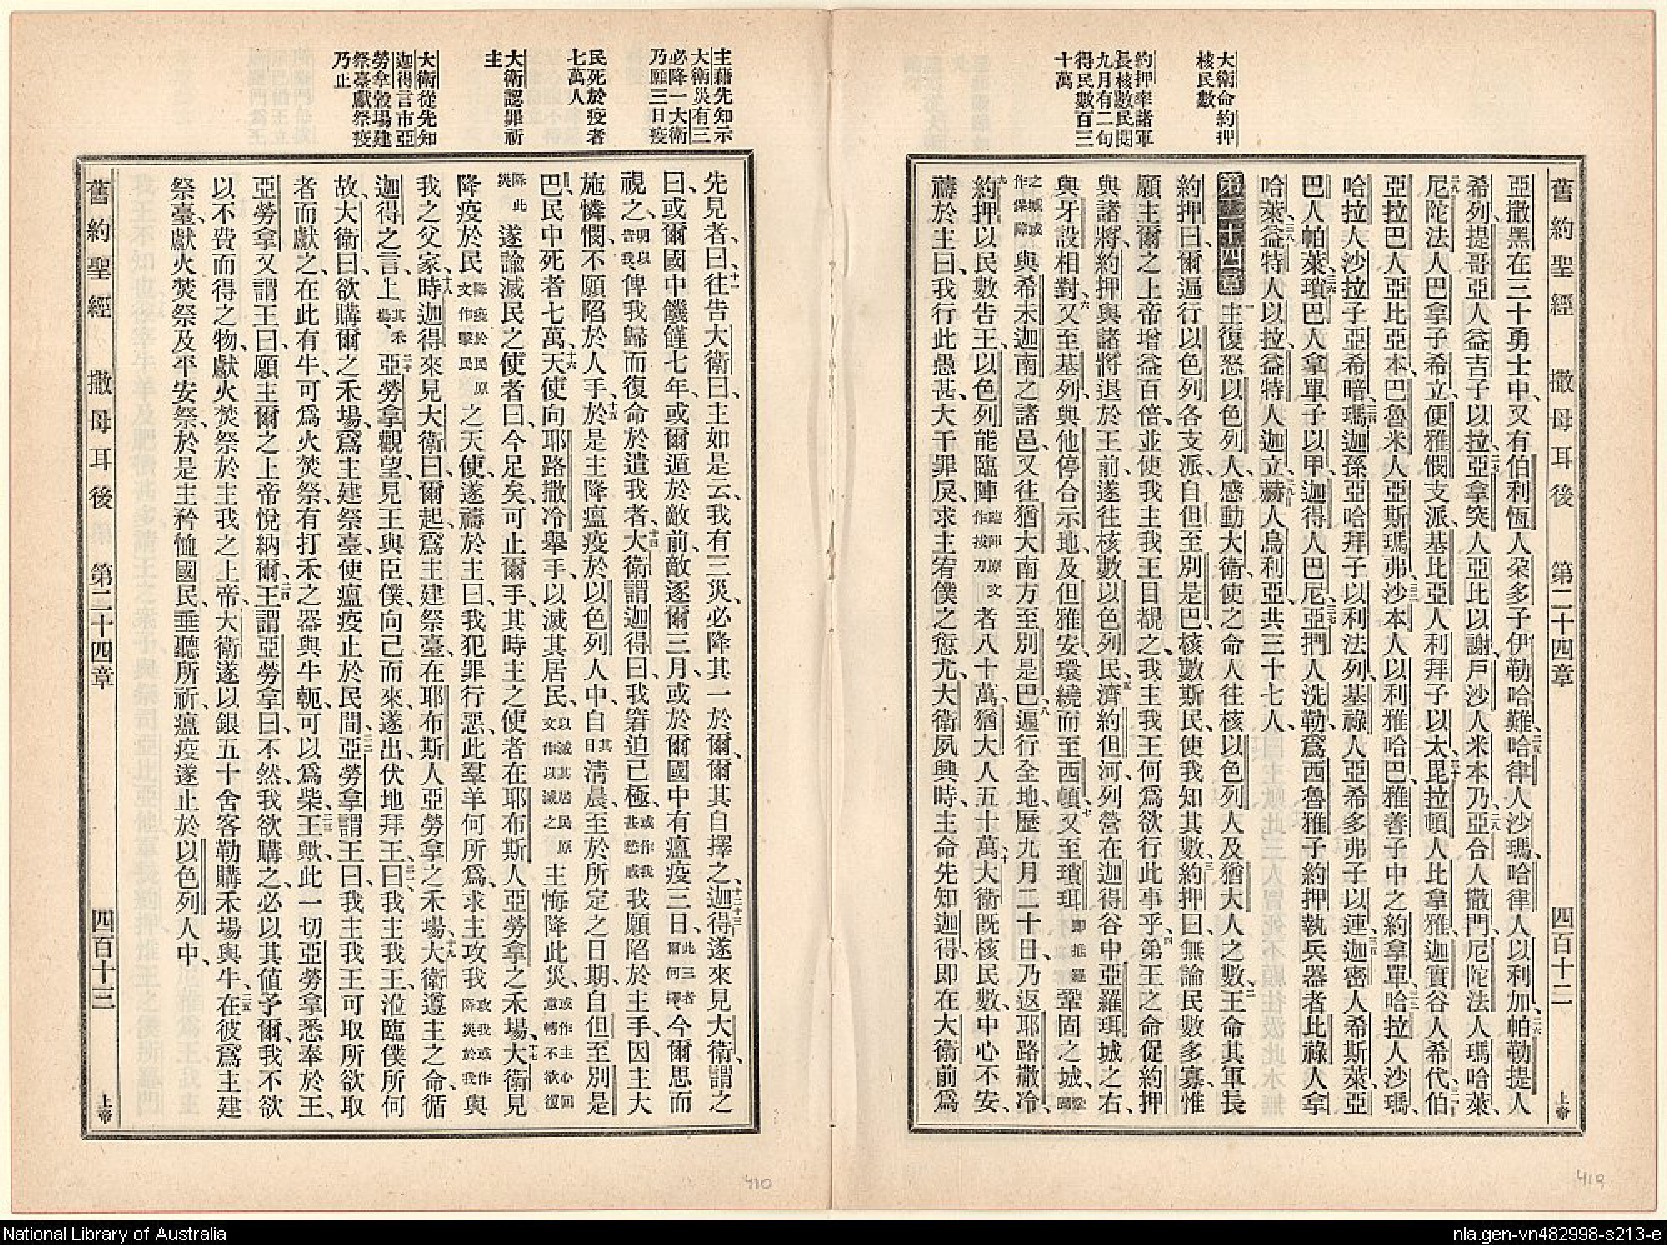 大衛命約押
核民數
約押率諸軍
長核數民閱
九月有二旬
得民數百三
十萬
舊約聖經 撒母耳後 第二十四章 四百十二 上帝
亞撒黑在三十勇士中、又有伯利恆人朶多子伊勒哈難、哈律人沙瑪、哈律人以利加、帕勒提人
希列、提哥亞人益吉子以拉、亞拿突人亞比以謝、戶沙人米本乃、亞合人撒門、尼陀法人瑪哈萊、
尼陀法人巴拿子希立、便雅憫支派、基比亞人利拜子以太、毘拉頓人比拿雅、迦實谷人希代、伯
亞拉巴人亞比亞本、巴魯米人亞斯瑪弗、沙本人以利雅哈巴、雅善子中之約拿單、哈拉人沙瑪、
哈拉人沙拉子亞希暗、瑪迦孫亞哈拜子以利法列、基祿人亞希多弗子以連、迦密人希斯萊、亞
巴人帕萊、瑣巴人拿單子以甲、迦得人巴尼、亞捫人洗勒、爲西魯雅子約押執兵器者比祿人拿
哈萊、益特人以拉、益特人迦立、赫人烏利亞、共三十七人、
第二十四章 主復怒以色列人、感動大衛、使之命人往核以色列人及猶大人之數、王命其軍長
約押曰、爾遍行以色列各支派、自但至別是巴、核數斯民、使我知其數、約押曰、無論民數多寡、惟
願主爾之上帝增益百倍、並使我主我王目覩之、我主我王何爲欲行此事乎、第王之命促約押
與諸將、約押與諸將退於王前、遂往核數以色列民、濟約但河、列營在迦得谷中亞羅珥城之右、
與牙設相對、又至基列、與他停合示地、及但雅安、環繞而至西頓、又至瑣珥 即推羅 鞏固之城、
與希未迦南之諸邑、又往猶大南方至別是巴、遍行全地、歷九月二十日、乃返耶路撒冷、
約押以民數告王、以色列能臨陣 臨陣原文作拔刀 者八十萬、猶大人五十萬、大衛旣核民數、中心不安、
禱於主曰、我行此愚甚、大干罪戾、求主宥僕之愆尤、大衛夙興時、主命先知迦得、卽在大衛前爲
主藉先知示
大衛災有三
必降一大衛
乃願三日疫
民死於疫者
七萬人
大衛認罪祈
主
大衛從先知
迦得言市亞
勞拿穀場建
祭臺獻祭疫
乃止
先見者、曰、往告大衛曰、主如是云、我有三災、必降其一於爾、爾其自擇之、迦得遂來見大衛、謂之
曰、或爾國中饑饉七年、或爾遁於敵前、敵逐爾三月、或於爾國中有瘟疫三日、此三者爾何擇 今爾思而
視之、明以告我 俾我歸而復命於遣我者、大衛謂迦得曰、我窘迫已極、或作我甚愁慼 我願陷於主手、因主大
施憐憫、不願陷於人手、於是主降瘟疫於以色列人中、自其日清晨至於所定之日期、自但至別是
巴、民中死者七萬、天使向耶路撒冷舉手、以滅其居民、以滅其居民原文作以滅之 主悔降此災、或作主心回意轉不欲復
降此災 遂諭滅民之使者曰、今足矣、可止爾手、其時主之使者在耶布斯人亞勞拿之禾場、大衛見
降疫於民 降疫於民原文作擊民 之天使、遂禱於主曰、我犯罪行惡、此羣羊何所爲、求主攻我 攻我或作降災於我 與
我之父家、時迦得來見大衛曰、爾起爲主建祭臺在耶布斯人亞勞拿之禾場、大衛遵主之命、循
迦得之言上 其禾場 亞勞拿觀望、見王與臣僕向己而來、遂出伏地拜王、曰、我主我王、涖臨僕所何
故、大衛曰、欲購爾之禾場、爲主建祭臺、使瘟疫止於民間、亞勞拿謂王曰、我主我王可取所欲取
者而獻之、在此有牛、可爲火焚祭、有打禾之器與牛軛、可以爲柴、王歟、此一切亞勞拿悉奉於王、
亞勞拿又謂王曰、願主爾之上帝悅納爾、王謂亞勞拿曰、不然、我欲購之、必以其値予爾、我不欲
以不費而得之物、獻火焚祭於主我之上帝、大衛遂以銀五十舍客勒購禾場與牛、在彼爲主建
祭臺、獻火焚祭及平安祭、於是主矜恤國民、垂聽所祈、瘟疫遂止於以色列人中、
舊約聖經 撒母耳後 第二十四章 四百十三 上帝
410
National Library of Australia
nla.gen-vn482998-s213-e